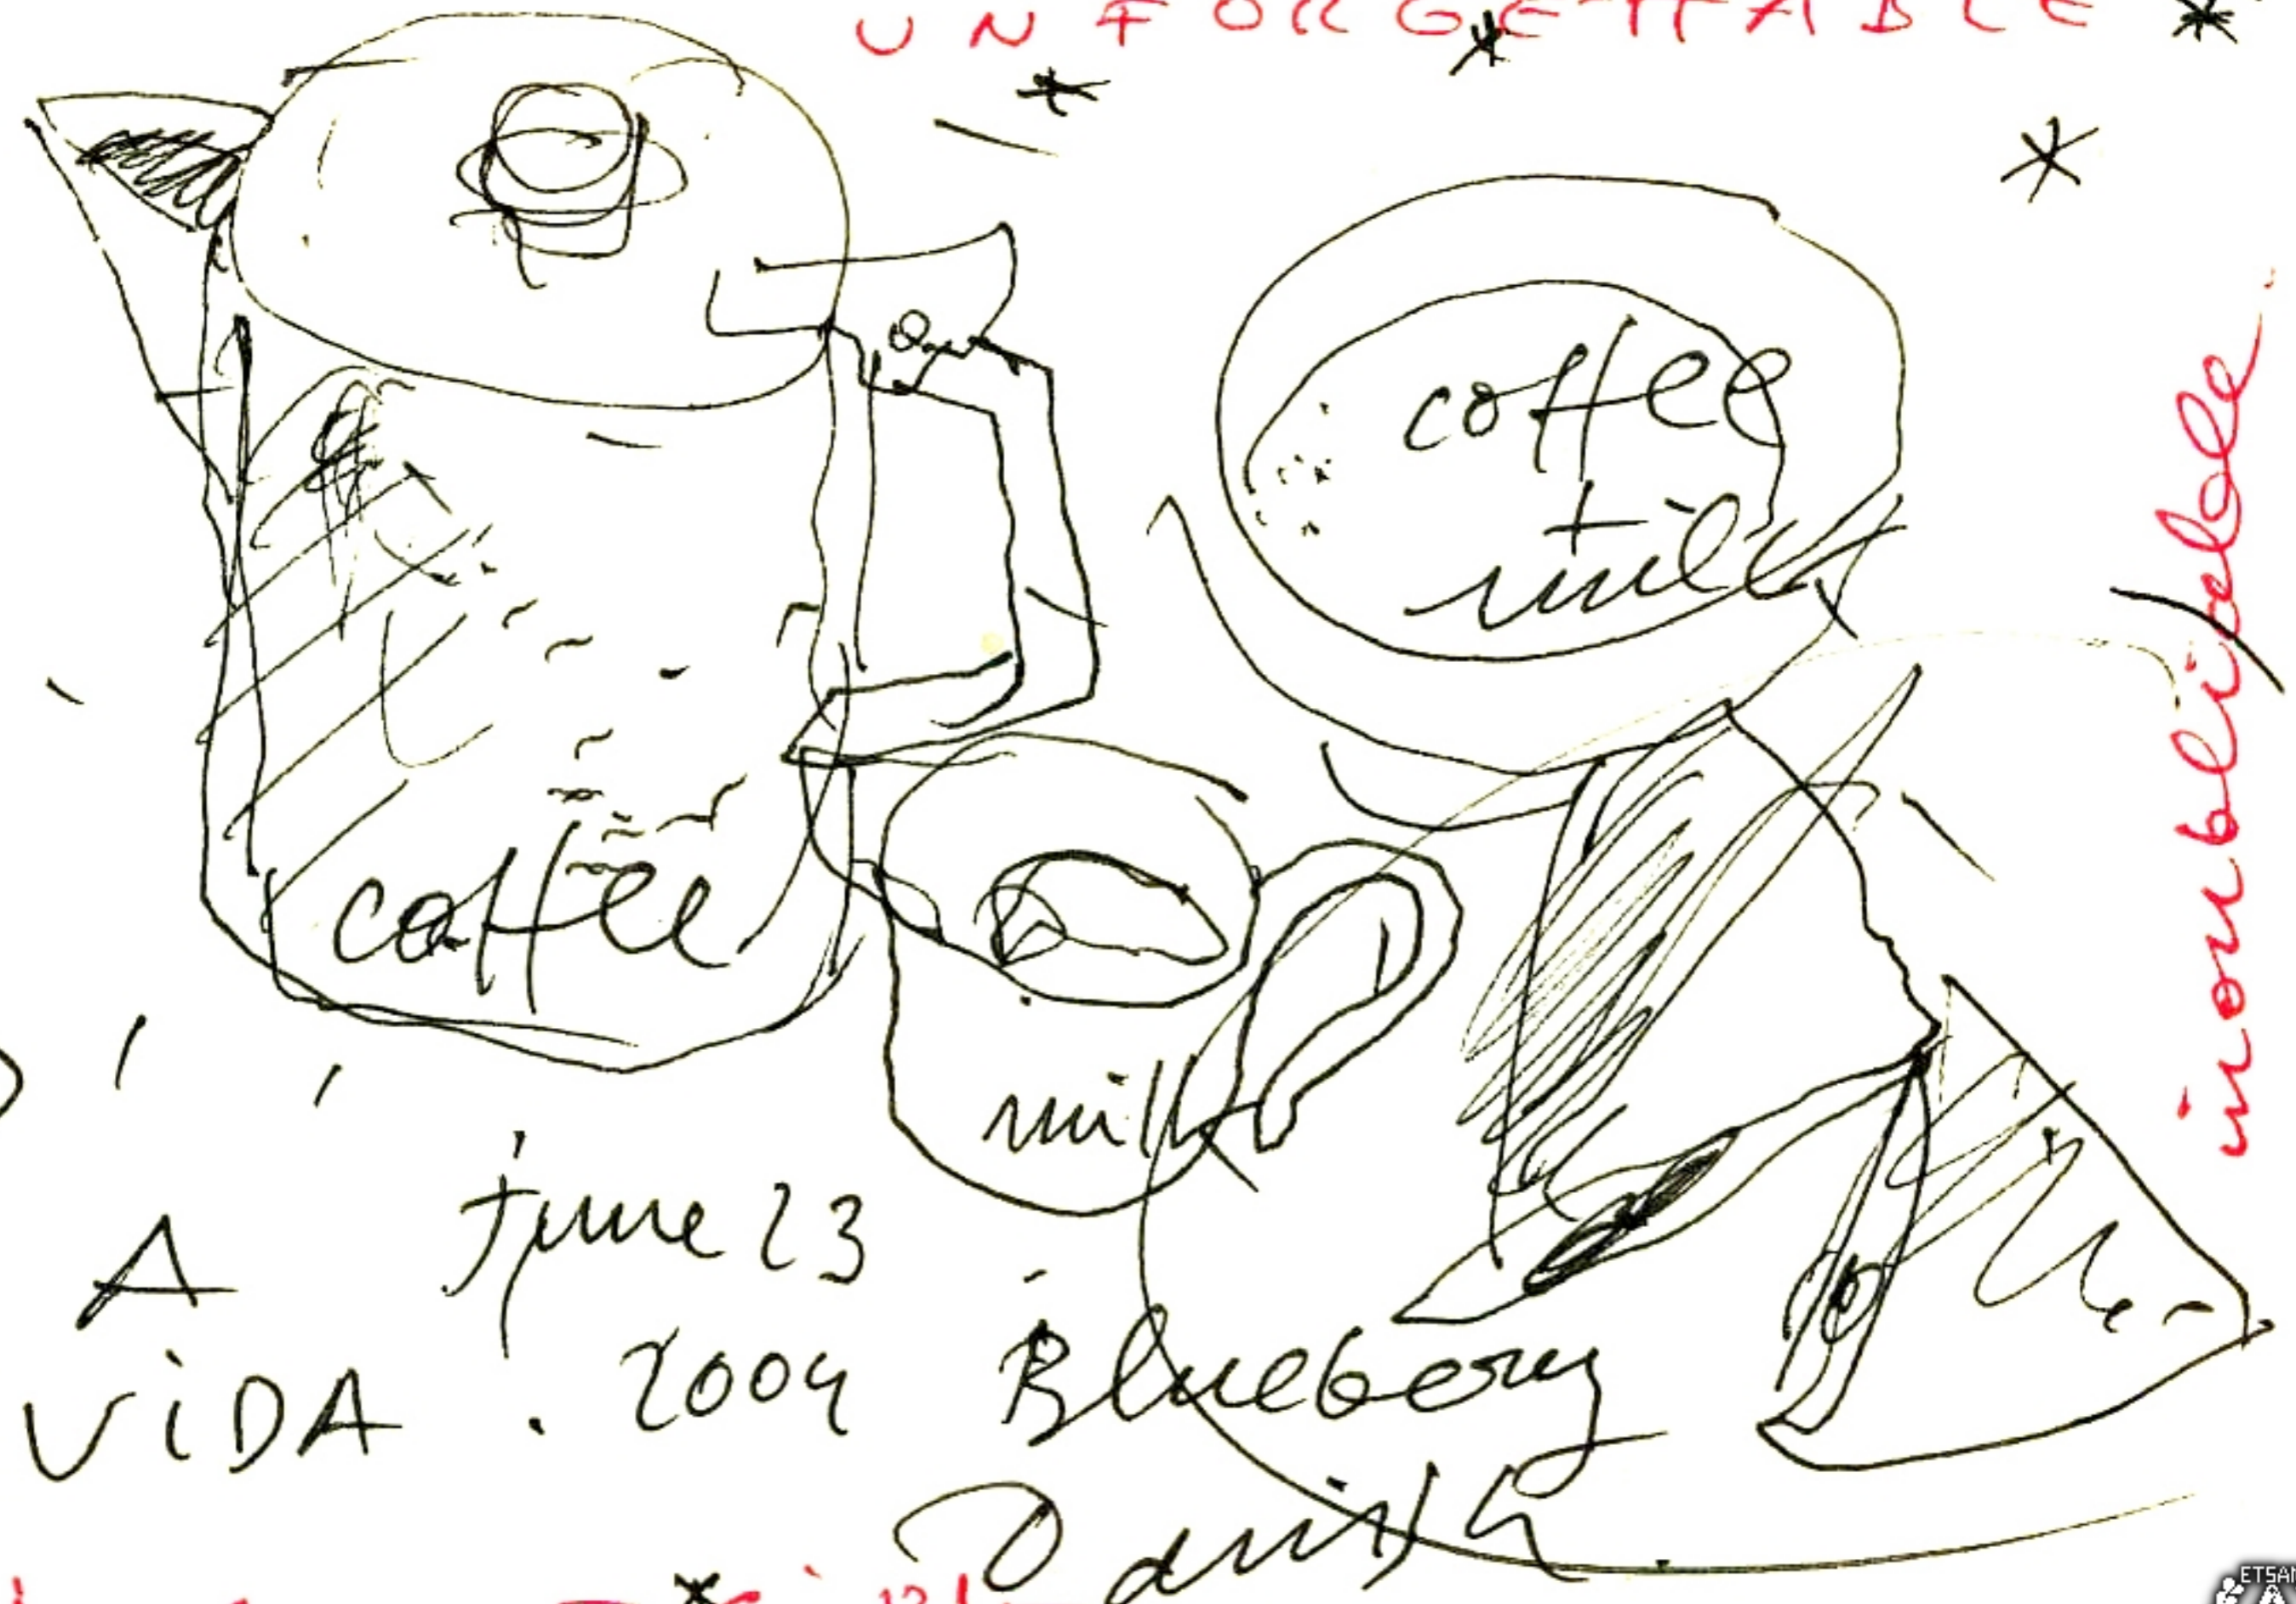 UNFORGETTABLE
coffee
+
milk
inoubliable
coffee
milk
June 23
A
ViDA . 2004
Blueberry
Danish
ETSAN